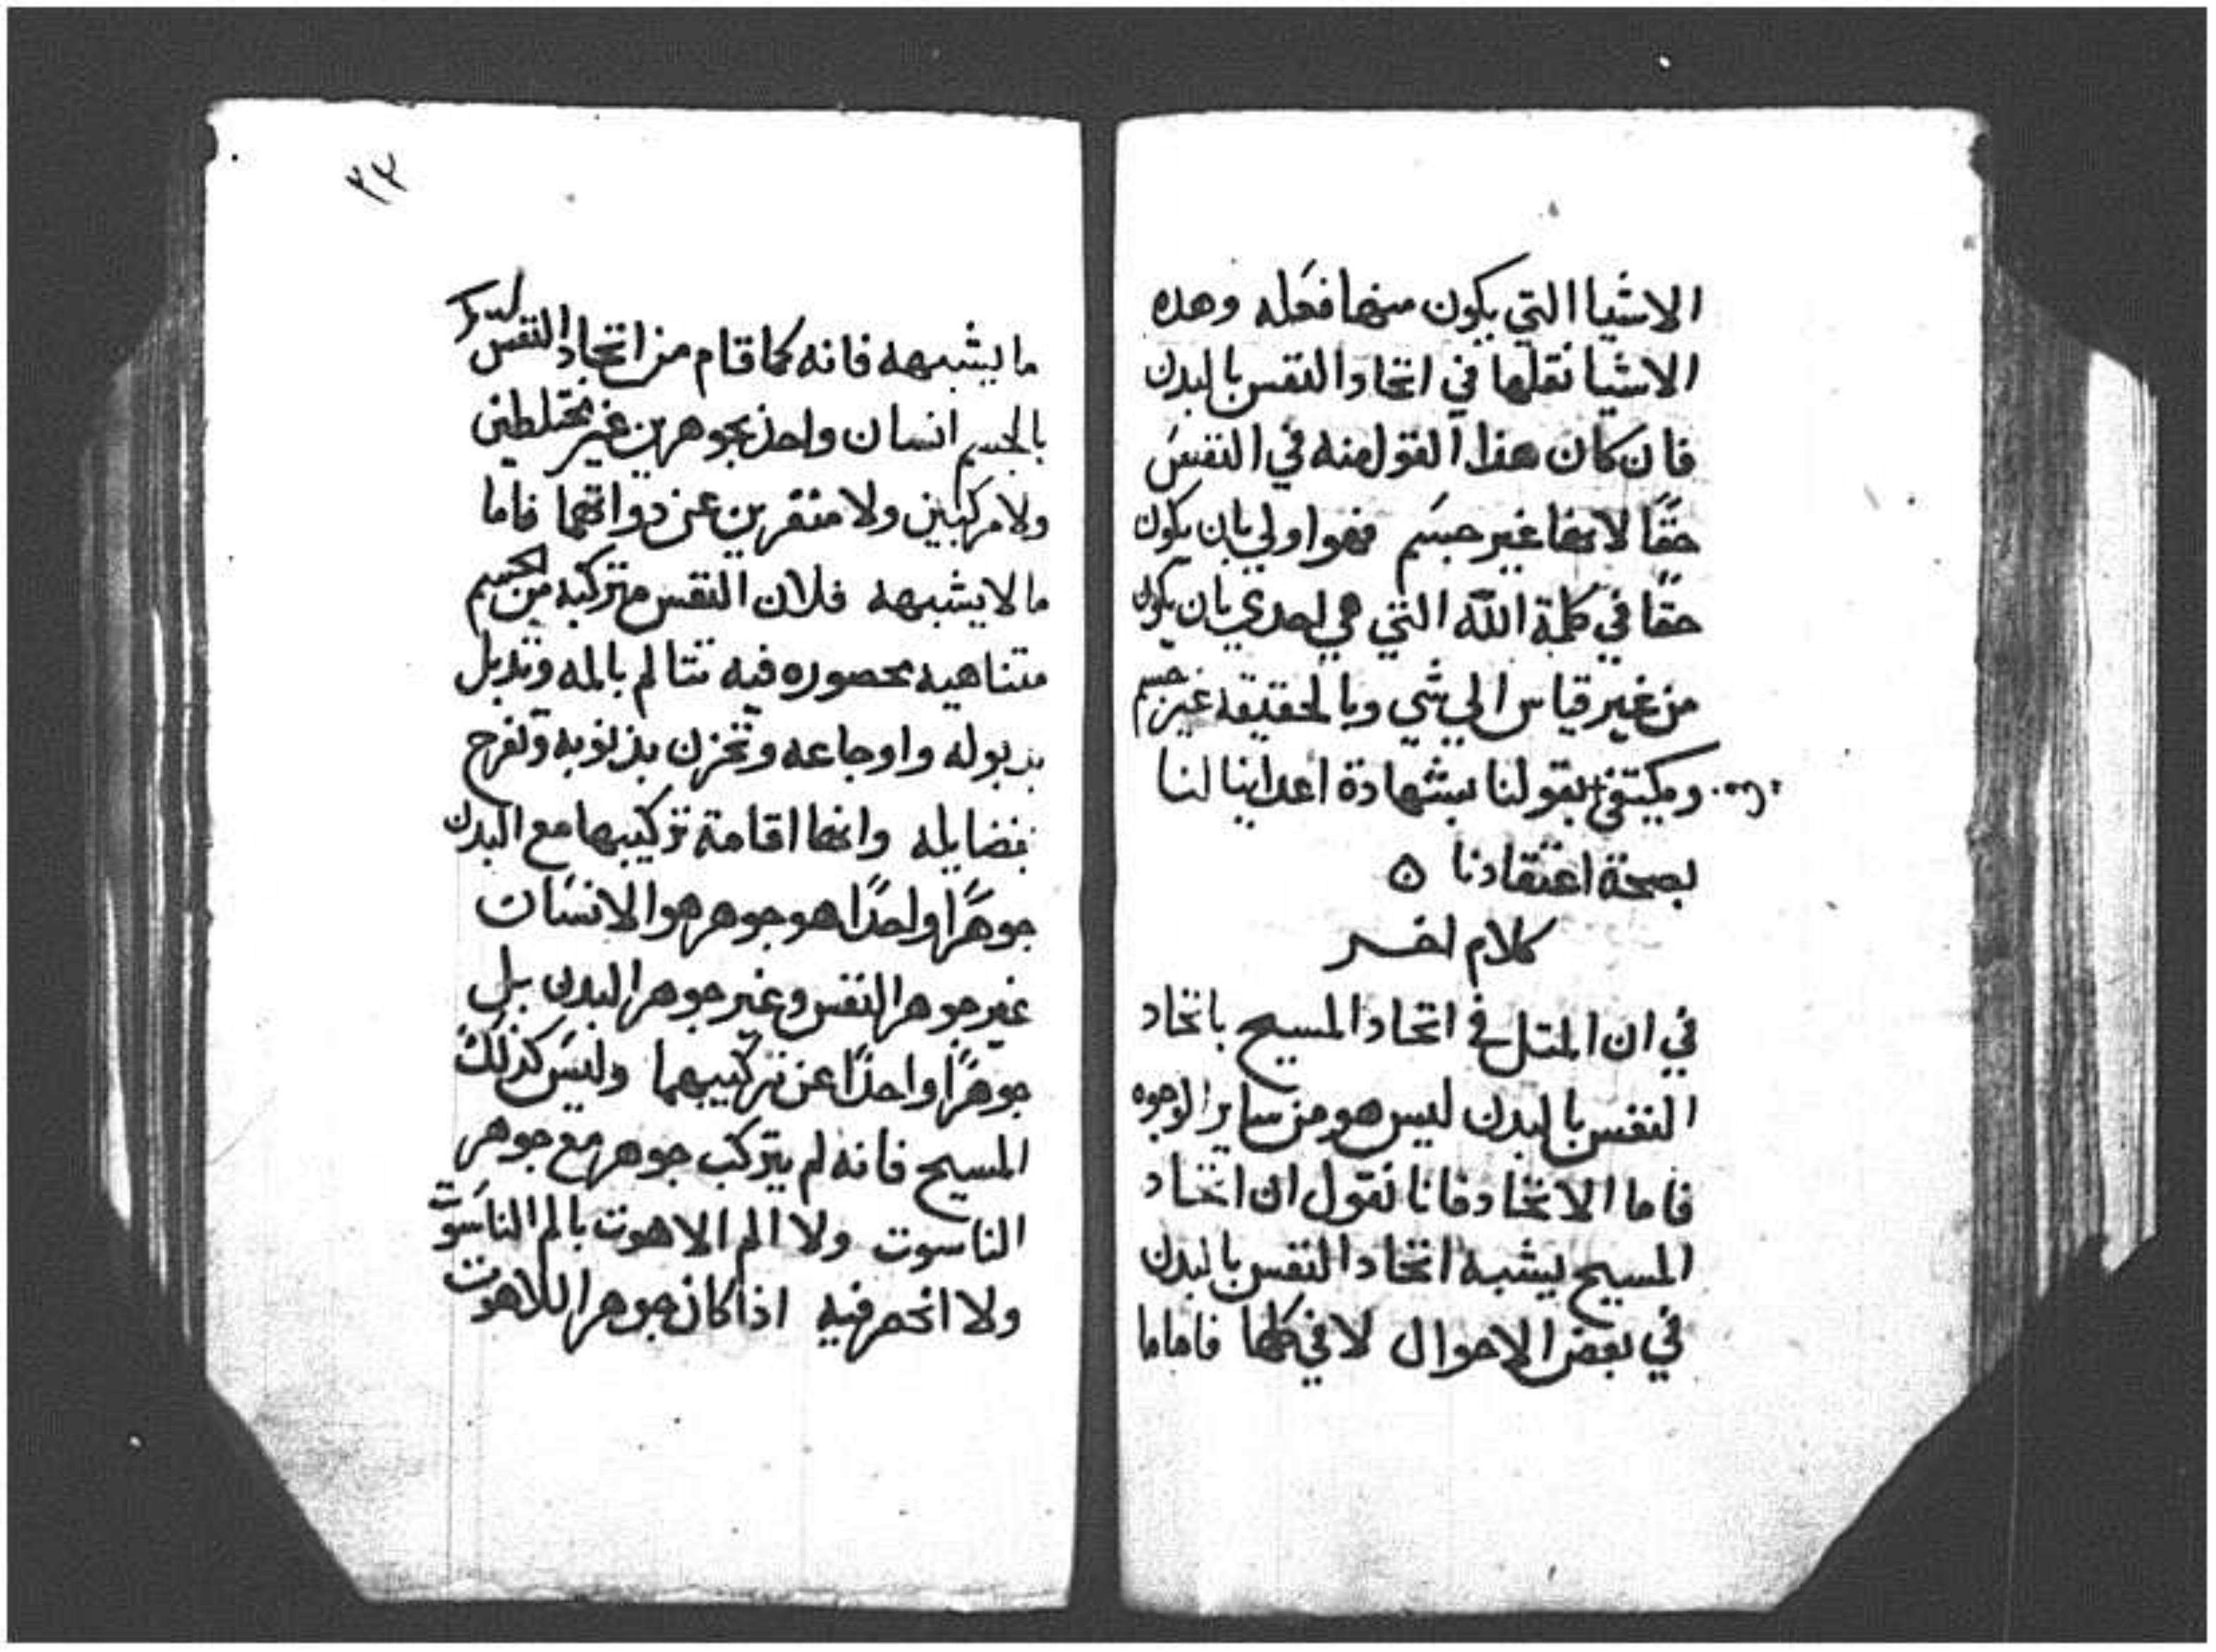 الاشيا التي يكون منها فعله وهده
الاشيا نقلها في اتحاد النفس بالبدن
فان كان هذا القول منه في النفس
حقًا لانها غير جسم فهو اولي بان يكون
حقًا في كلمة الله التي هي احدي بان يكون
من غير قياس الي شي وبالحقيقه غير جسم
ويكتفي بقولنا بشهادة اعداينا لنا
بصحة اعتقادنا ه
كلام اخر
في ان المتل في اتحاد المسيح باتحاد
النفس بالبدن ليس هو من ساير الوجوه
فاما الاتحاد فانا نقول ان اتحاد
المسيح يشبه اتحاد النفس بالبدن
في بعض الاحوال لا في كلها فاما ما
٣٣
ما يشبهه فانه كما قام من اتحاد النفس
بالجسم انسان واحد بجوهرين غير مختلطين
ولا مركبين ولا متغيرين عن دواتهما فاما
ما لا يشبهه فلان النفس متركبه من الجسم
متناهيه محصوره فيه تتالم بالمه وتدبل
بدبوله واوجاعه وتحزن بذنوبه وتفرح
بفضايله وانها اقامة تركيبها مع البدن
جوهرًا واحدًا هو جوهر هو الانسان
غير جوهر النفس وغير جوهر البدن بل
جوهرًا واحدًا عن تركيبهما وليس كذلك
المسيح فانه لم يتركب جوهر مع جوهر
الناسوت ولا الم الاهوت بالم الناسوت
ولا انحصر فيه اذا كان جوهر اللاهوت